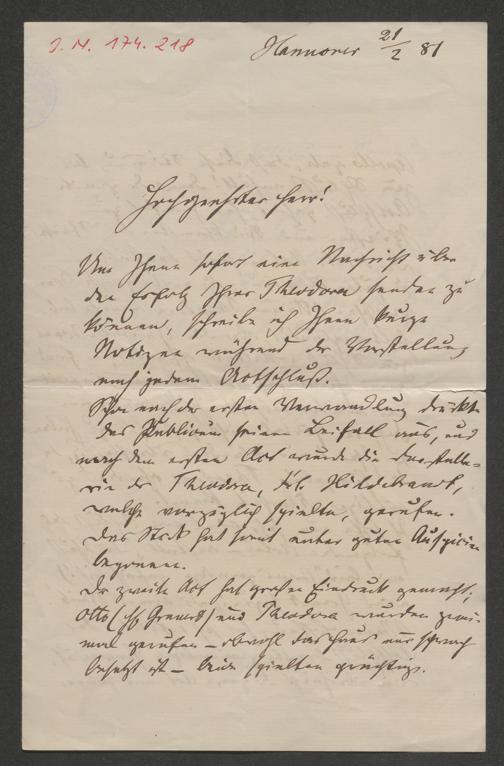 I. N. 174.218
Hannover 21/2 81
Hochgeehrter Herr!
Um Ihnen sofort eine Nachricht über
den Erfolg Ihrer Theodora senden zu
können, schreibe ich Ihnen kurze
Notizen während der Vorstellung
nach jedem Actschluß.
Schon nach der ersten Verwandlung drückte
das Publicum seinen Beifall aus, und
nach dem ersten Act wurde die Darstelle-
rin der Theodora, Frl. Hildebrandt,
welche vorzüglich spielte, gerufen.
Das Stück hat somit unter guten Auspicien
begonnen.
Der zweite Act hat großen Eindruck gemacht,
Otto und Theodora wurden zwei-
mal gerufen – obwohl das Haus nur schwach
besetzt ist – beide spielten prächtig.